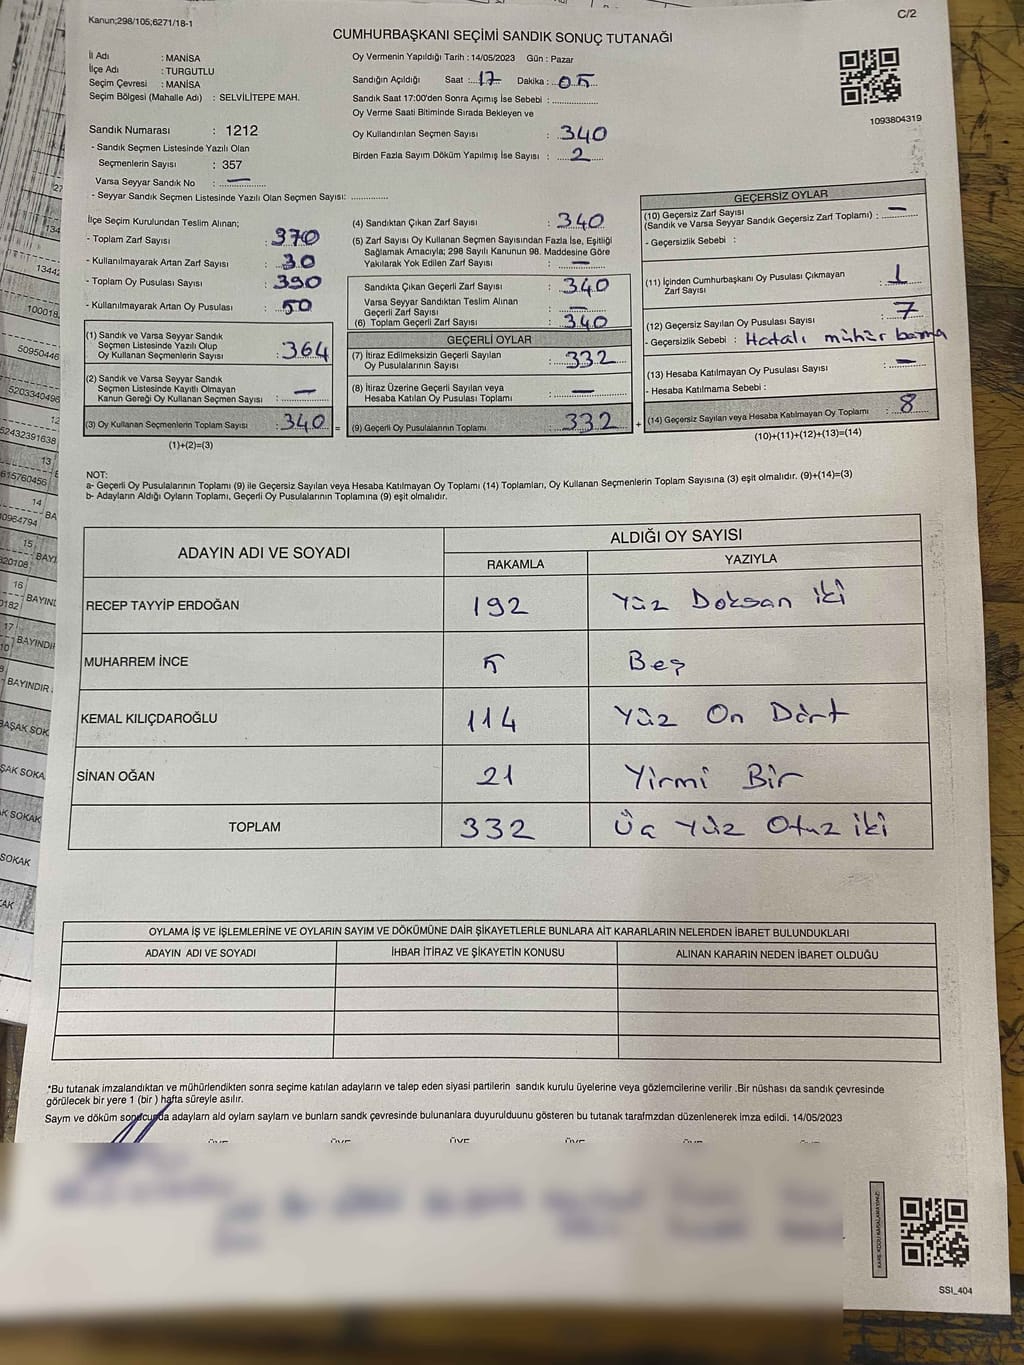 Kanun;298/105;6271/18-1
C/2
CUMHURBAŞKANI SEÇİMİ SANDIK SONUÇ TUTANAĞI
İl Adı : MANİSA
İlçe Adı : TURGUTLU
Seçim Çevresi : MANİSA
Seçim Bölgesi (Mahalle Adı) : SELVİLİTEPE MAH.
Oy Vermenin Yapıldığı Tarih : 14/05/2023 Gün : Pazar
Sandığın Açıldığı Saat : 17 Dakika : 05
Sandık Saat 17:00'den Sonra Açımış İse Sebebi :
Oy Verme Saati Bitiminde Sırada Bekleyen ve
Oy Kullandırılan Seçmen Sayısı : 340
Birden Fazla Sayım Döküm Yapılmış İse Sayısı : 2
1093804319
Sandık Numarası : 1212
- Sandık Seçmen Listesinde Yazılı Olan
Seçmenlerin Sayısı : 357
Varsa Seyyar Sandık No : —
- Seyyar Sandık Seçmen Listesinde Yazılı Olan Seçmen Sayısı:
İlçe Seçim Kurulundan Teslim Alınan;
- Toplam Zarf Sayısı : 370
- Kullanılmayarak Artan Zarf Sayısı : 30
- Toplam Oy Pusulası Sayısı : 390
- Kullanılmayarak Artan Oy Pusulası : 50
(1) Sandık ve Varsa Seyyar Sandık
Seçmen Listesinde Yazılı Olup
Oy Kullanan Seçmenlerin Sayısı : 364
(2) Sandık ve Varsa Seyyar Sandık
Seçmen Listesinde Kayıtlı Olmayan
Kanun Gereği Oy Kullanan Seçmen Sayısı : —
(3) Oy Kullanan Seçmenlerin Toplam Sayısı : 340 =
(1)+(2)=(3)
(4) Sandıktan Çıkan Zarf Sayısı : 340
(5) Zarf Sayısı Oy Kullanan Seçmen Sayısından Fazla İse, Eşitliği
Sağlamak Amacıyla; 298 Sayılı Kanunun 98. Maddesine Göre
Yakılarak Yok Edilen Zarf Sayısı : —
Sandıkta Çıkan Geçerli Zarf Sayısı : 340
Varsa Seyyar Sandıktan Teslim Alınan
Geçerli Zarf Sayısı : —
(6) Toplam Geçerli Zarf Sayısı : 340
GEÇERLİ OYLAR
(7) İtiraz Edilmeksizin Geçerli Sayılan
Oy Pusulalarının Sayısı : 332
(8) İtiraz Üzerine Geçerli Sayılan veya
Hesaba Katılan Oy Pusulası Toplamı : —
(9) Geçerli Oy Pusulalarının Toplamı : 332 +
GEÇERSİZ OYLAR
(10) Geçersiz Zarf Sayısı
(Sandık ve Varsa Seyyar Sandık Geçersiz Zarf Toplamı) : —
- Geçersizlik Sebebi :
(11) İçinden Cumhurbaşkanı Oy Pusulası Çıkmayan
Zarf Sayısı : 1
(12) Geçersiz Sayılan Oy Pusulası Sayısı : 7
- Geçersizlik Sebebi : Hatalı mühür basma
(13) Hesaba Katılmayan Oy Pusulası Sayısı : —
- Hesaba Katılmama Sebebi :
(14) Geçersiz Sayılan veya Hesaba Katılmayan Oy Toplamı : 8
(10)+(11)+(12)+(13)=(14)
NOT:
a- Geçerli Oy Pusulalarının Toplamı (9) ile Geçersiz Sayılan veya Hesaba Katılmayan Oy Toplamı (14) Toplamları, Oy Kullanan Seçmenlerin Toplam Sayısına (3) eşit olmalıdır. (9)+(14)=(3)
b- Adayların Aldığı Oyların Toplamı, Geçerli Oy Pusulalarının Toplamına (9) eşit olmalıdır.
ADAYIN ADI VE SOYADI
ALDIĞI OY SAYISI
RAKAMLA YAZIYLA
RECEP TAYYİP ERDOĞAN 192 Yüz Doksan iki
MUHARREM İNCE 5 Beş
KEMAL KILIÇDAROĞLU 114 Yüz On Dört
SİNAN OĞAN 21 Yirmi Bir
TOPLAM 332 Üç Yüz Otuz iki
OYLAMA İŞ VE İŞLEMLERİNE VE OYLARIN SAYIM VE DÖKÜMÜNE DAİR ŞİKAYETLERLE BUNLARA AİT KARARLARIN NELERDEN İBARET BULUNDUKLARI
ADAYIN ADI VE SOYADI İHBAR İTİRAZ VE ŞİKAYETİN KONUSU ALINAN KARARIN NEDEN İBARET OLDUĞU
*Bu tutanak imzalandıktan ve mühürlendikten sonra seçime katılan adayların ve talep eden siyasi partilerin sandık kurulu üyelerine veya gözlemcilerine verilir .Bir nüshası da sandık çevresinde
görülecek bir yere 1 (bir ) hafta süreyle asılır.
Saym ve döküm sonucunda adaylarn ald oylarn saylarn ve bunlarn sandk çevresinde bulunanlara duyurulduunu gösteren bu tutanak tarafmzdan düzenlenerek imza edildi. 14/05/2023
SSI_404